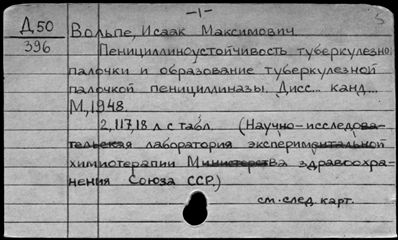 -1-
5
Д50
396
Вольпе, Исаак Максимович
Пенициллиноустойчивость туберкулезно
палочки и образование туберкулезной
палочкой пенициллиназы. Дисс... канд...
М, 1948.
2, 117, 18 л с табл. (Научно-исследова-
тельская лаборатория экспериментальной
химиотерапии Министерства здравоохра-
нения Союза ССР.)
см. след. карт.